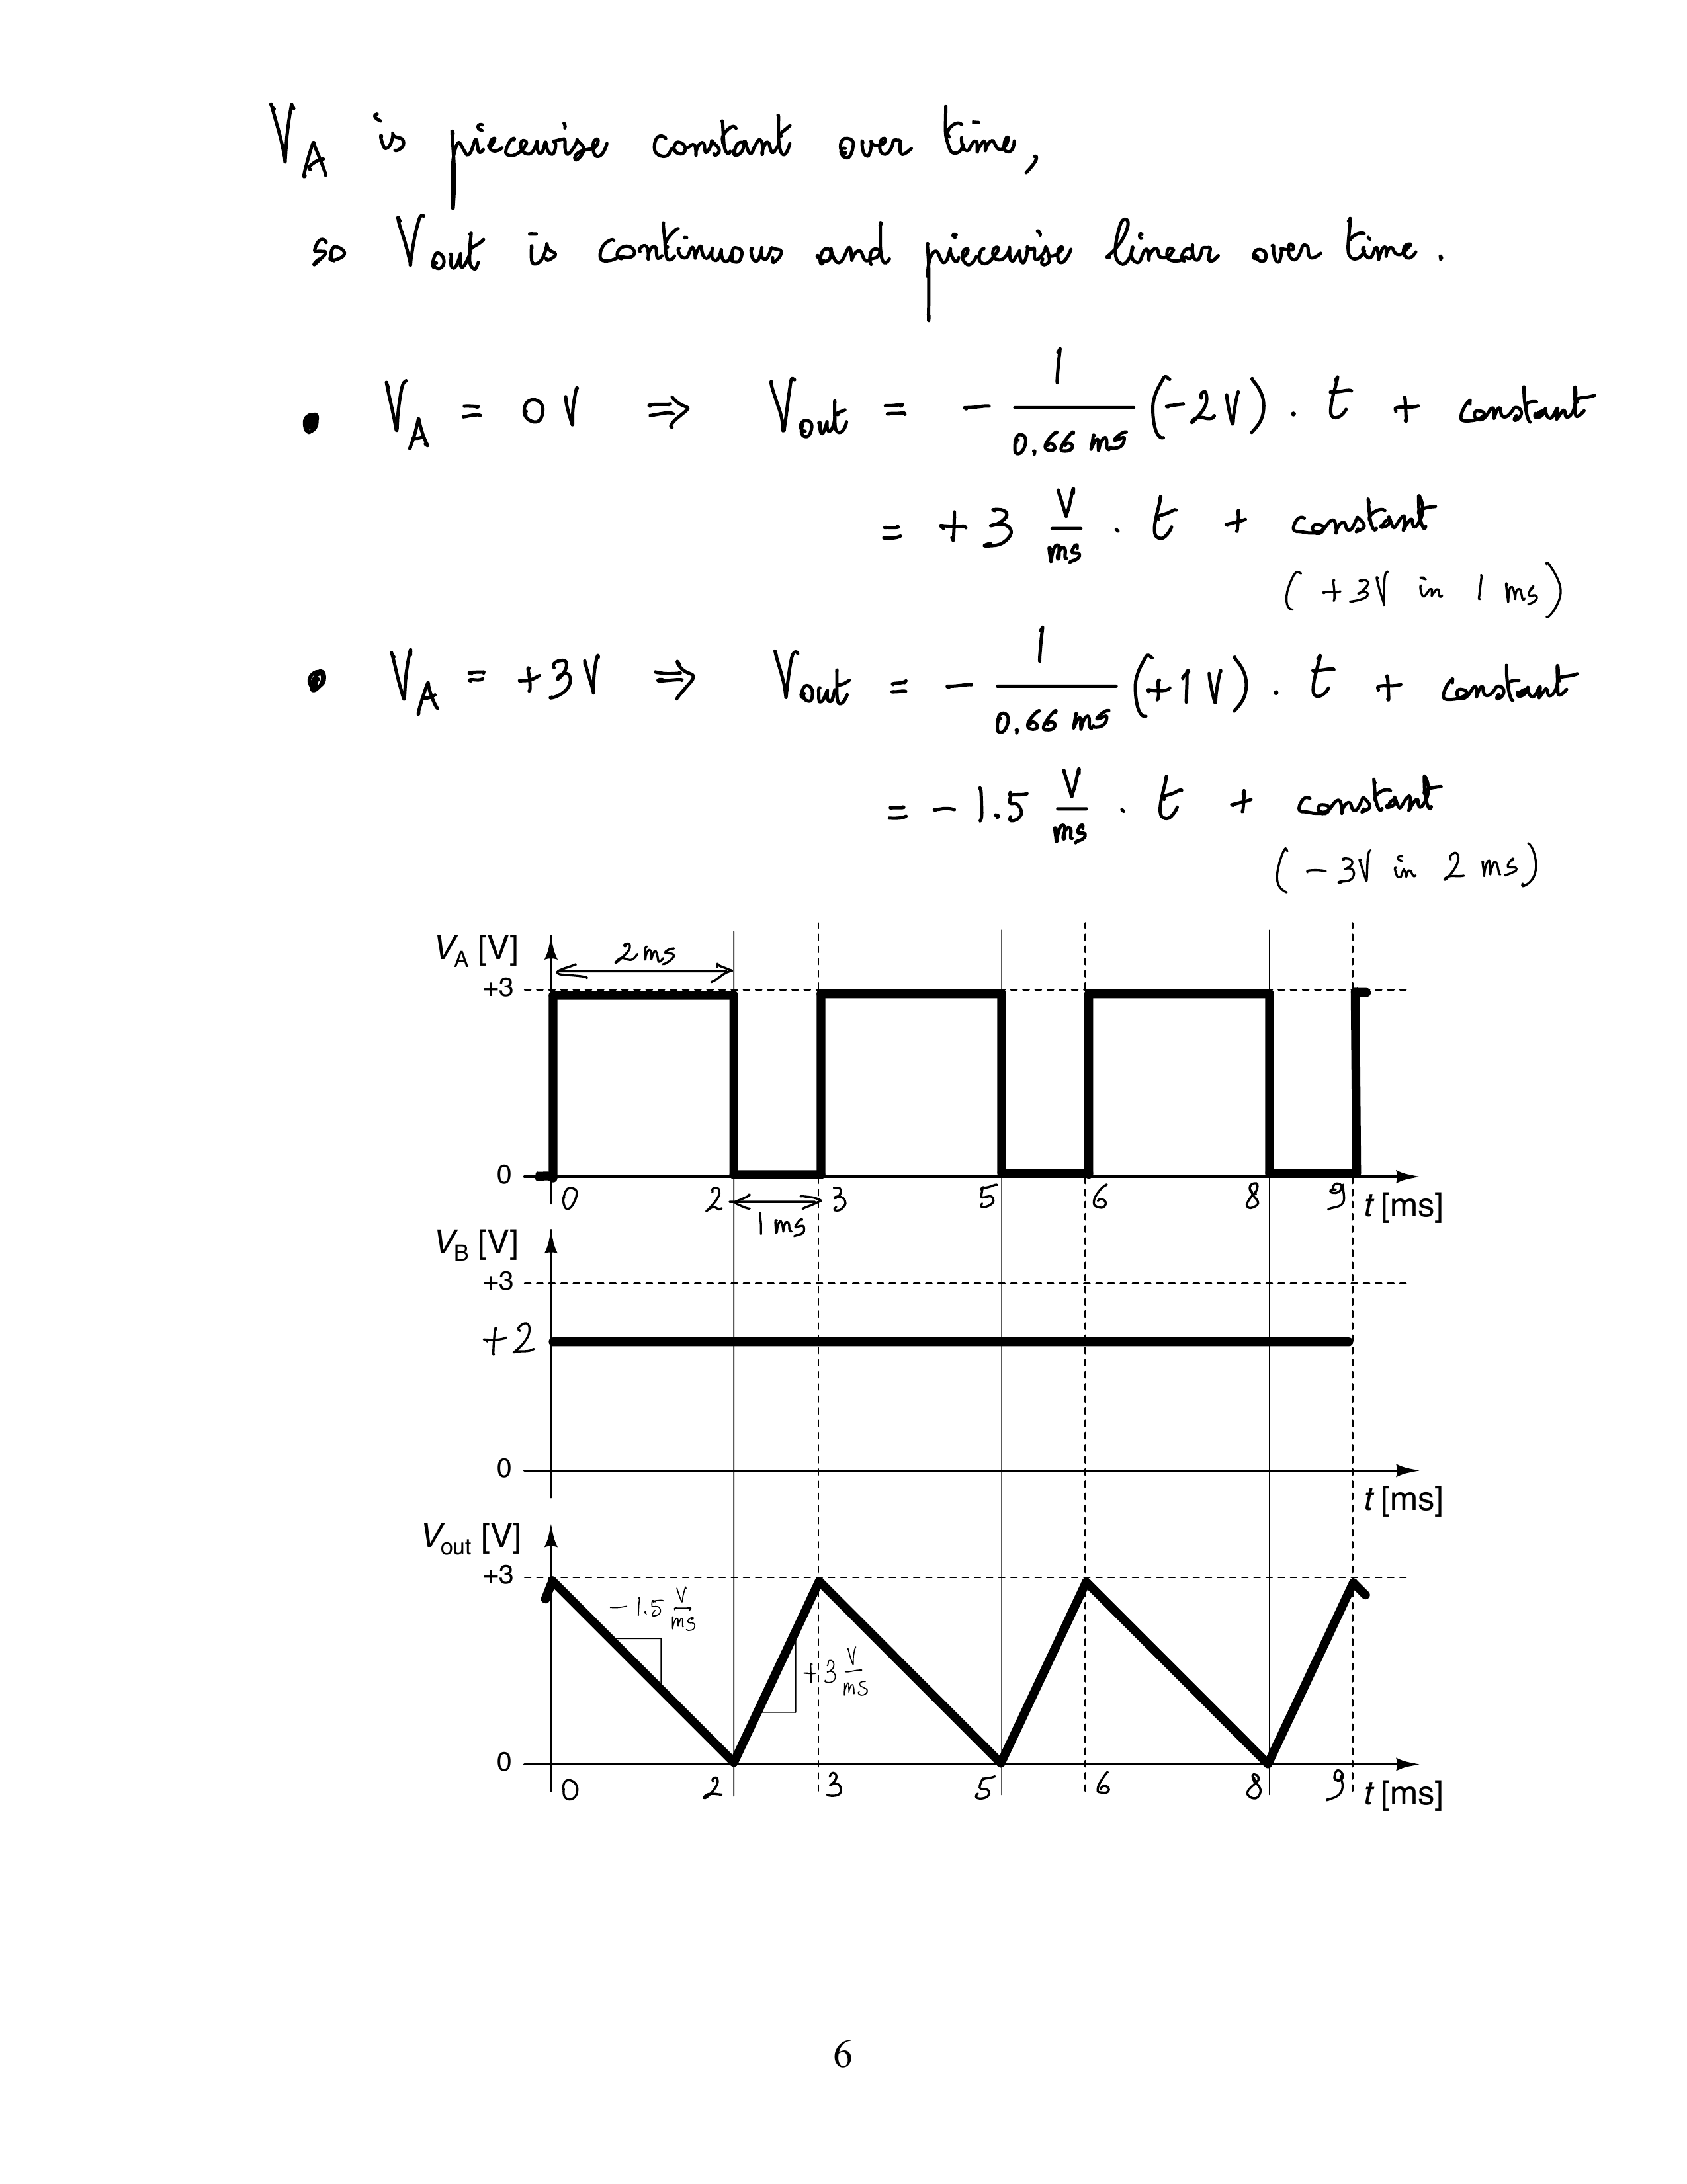 V_A is piecewise constant over time,
so V_out is continuous and piecewise linear over time.
• V_A = 0 V ⇒ V_out = - 1/(0.66 ms) (-2V) · t + constant
= +3 V/ms · t + constant
(+3V in 1 ms)
• V_A = +3V ⇒ V_out = - 1/(0.66 ms) (+1V) · t + constant
= -1.5 V/ms · t + constant
(-3V in 2 ms)
V_A [V]
2 ms
+3
0
0 2 3 5 6 8 9 t [ms]
1 ms
V_B [V]
+3
+2
0
t [ms]
V_out [V]
+3
-1.5 V/ms
+3 V/ms
0
0 2 3 5 6 8 9 t [ms]
6